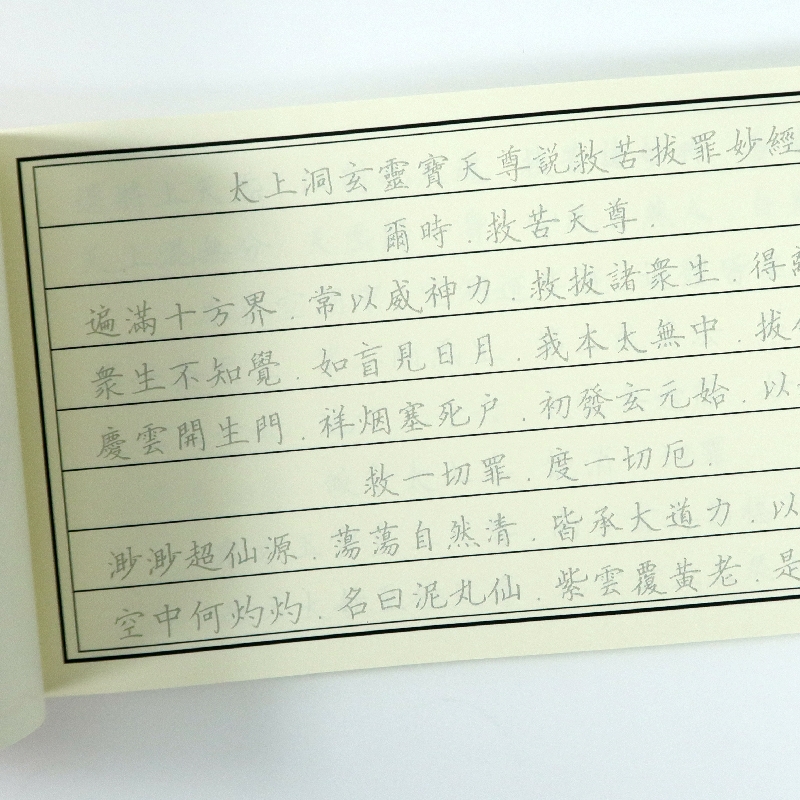 太上洞玄靈寶天尊説救苦拔罪妙經
爾時．救苦天尊．
遍滿十方界．常以威神力．救拔諸衆生．得離
衆生不知覺．如盲見日月．我本太無中．拔
慶雲開生門．祥烟塞死户．初發玄元始．以
救一切罪．度一切厄．
渺渺超仙源．蕩蕩自然清．皆承大道力．以
空中何灼灼．名曰泥丸仙．紫雲覆黄老．是